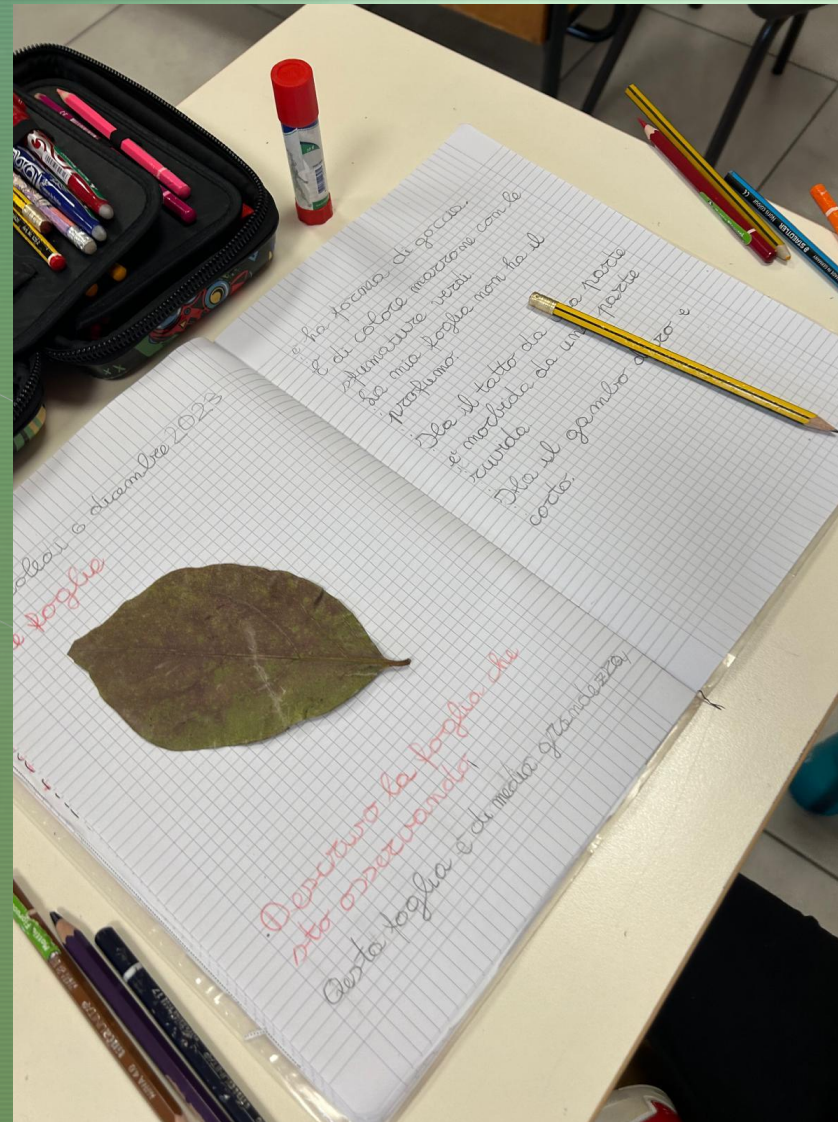 6 dicembre 2023
e foglie
Descrivo la foglia che
sto osservando
Qesta foglia è di media grandezza,
e ha forma di goccia.
È di colore marrone con le
sfumature verdi
La mia foglia non ha il
profumo
Ha il tatto da parte
e' morbida da un parte
ruvida
Ha il gambo e
corto.
STAEDTLER